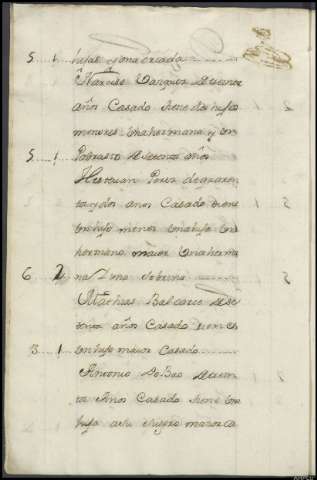 5 . 1 hijas y una criada
Narciso Vazquez de sesenta
años Casado tiene dos hijos
menores Una hermana y Un
5 . 1 Padrastro de setenta años
Estevan Perez de quaren
ta y dos anos Casado tiene
Un hijo menor Una hija Un
hermano maior Una herma
6 . 2 na Y Una Sobrina
Mathias Balcarce de se
tenta años Casado tiene
3 . 1 Un hijo maior Casado
Antonio Do de
ta Años Casado tiene Un
hijo a su maior ca